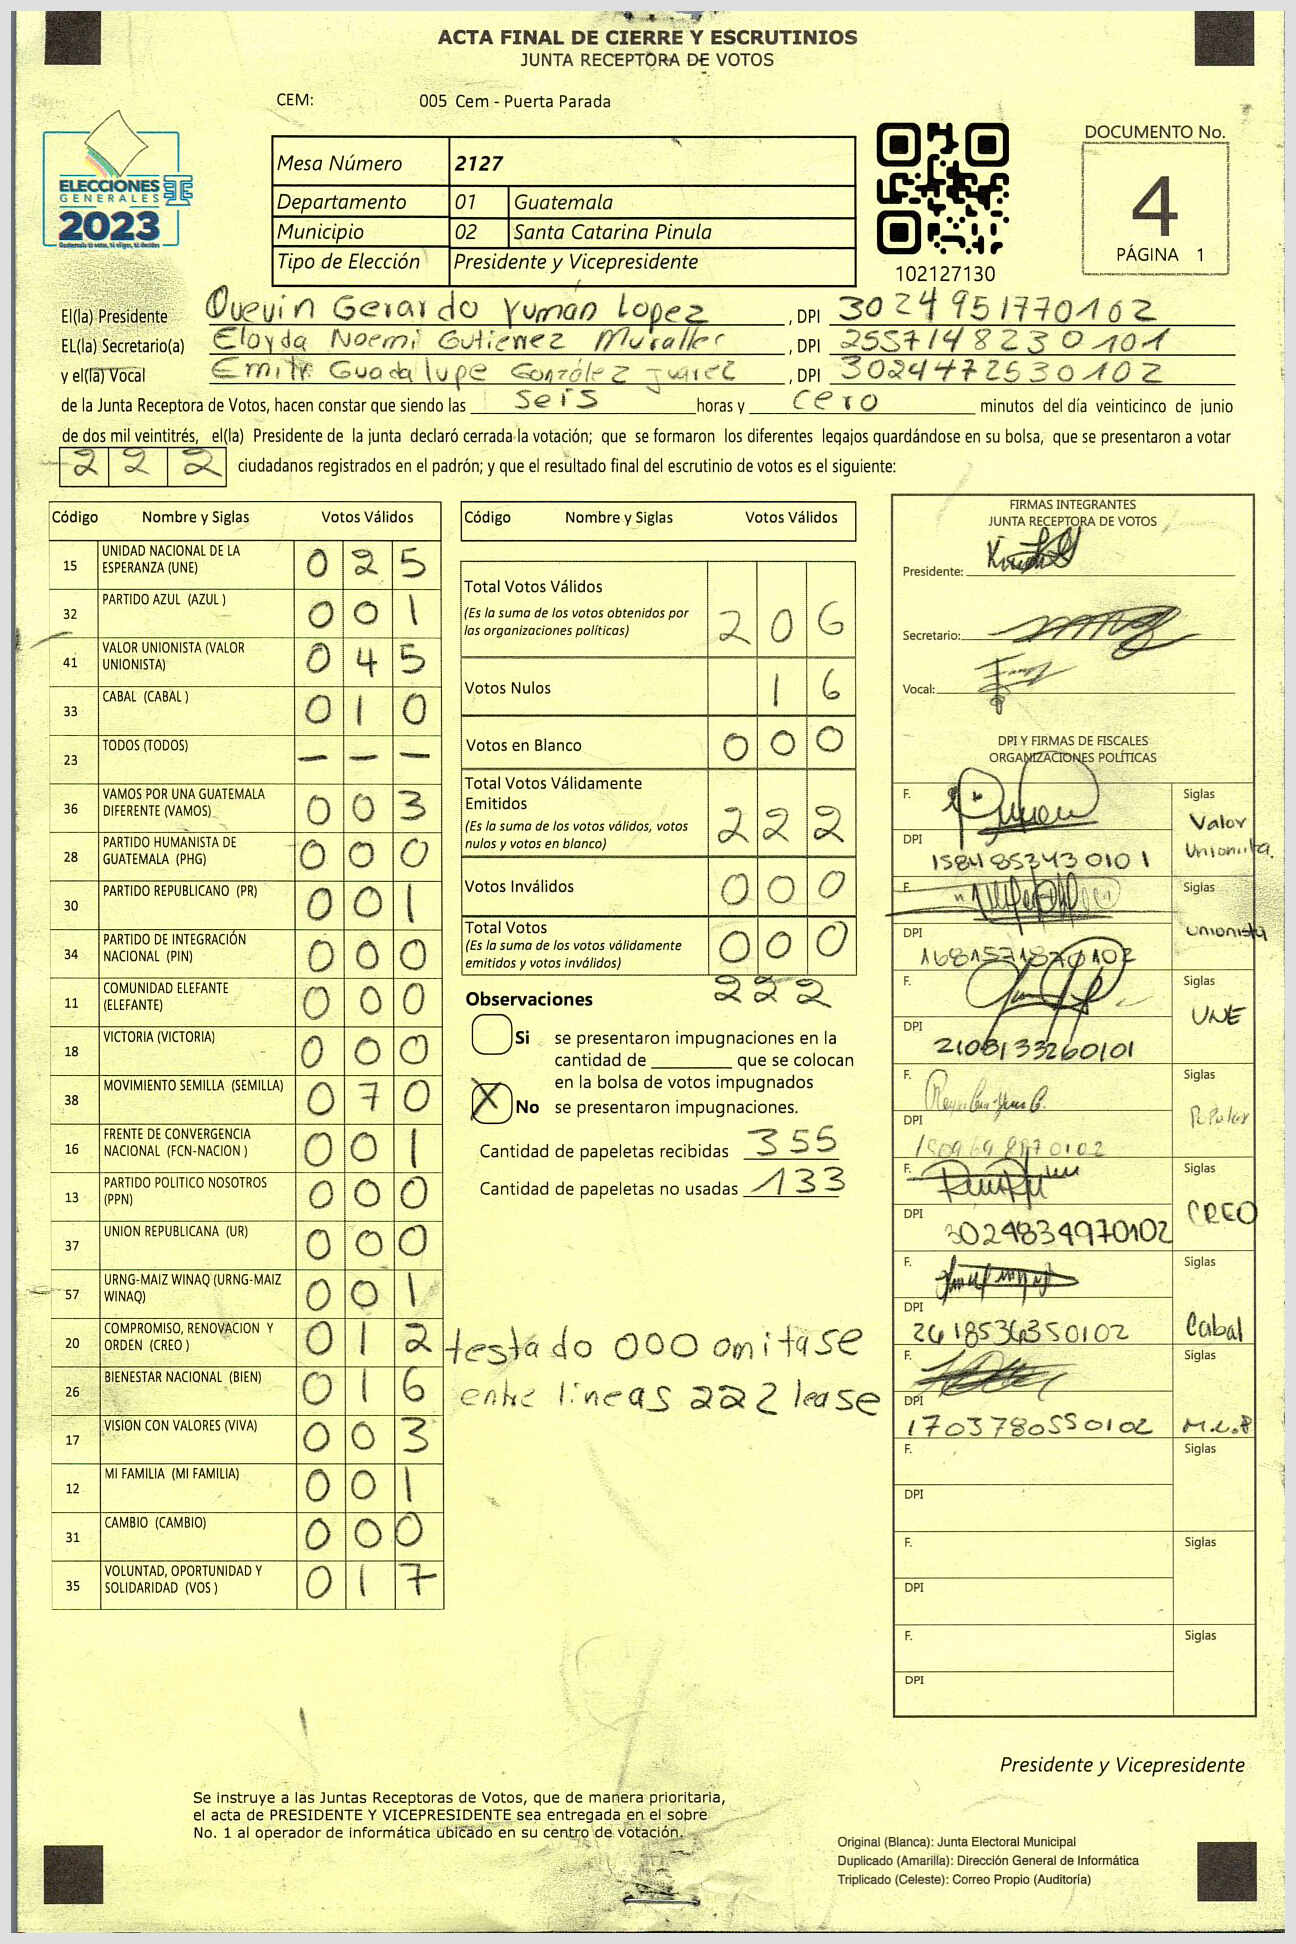 ACTA FINAL DE CIERRE Y ESCRUTINIOS
JUNTA RECEPTORA DE VOTOS
CEM: 005 Cem - Puerta Parada
ELECCIONES
GENERALES
2023
Guatemala tú votas, tú eliges, tú decides
Mesa Número 2127
Departamento 01 Guatemala
Municipio 02 Santa Catarina Pinula
Tipo de Elección Presidente y Vicepresidente
102127130
DOCUMENTO No.
4
PÁGINA 1
El(la) Presidente Quevin Gerardo Yuman Lopez , DPI 3024951770102
EL(la) Secretario(a) Eloyda Noemi Gutierrez , DPI 2557148230101
y el(la) Vocal Guadalupe González Juarez , DPI 3024472530102
de la Junta Receptora de Votos, hacen constar que siendo las seis horas y cero minutos del día veinticinco de junio
de dos mil veintitrés, el(la) Presidente de la junta declaró cerrada la votación; que se formaron los diferentes legajos quardándose en su bolsa, que se presentaron a votar
222 ciudadanos registrados en el padrón; y que el resultado final del escrutinio de votos es el siguiente:
Código Nombre y Siglas Votos Válidos
15 UNIDAD NACIONAL DE LA ESPERANZA (UNE) 025
32 PARTIDO AZUL (AZUL ) 001
41 VALOR UNIONISTA (VALOR UNIONISTA) 045
33 CABAL (CABAL ) 010
23 TODOS (TODOS) - - -
36 VAMOS POR UNA GUATEMALA DIFERENTE (VAMOS) 003
28 PARTIDO HUMANISTA DE GUATEMALA (PHG) 000
30 PARTIDO REPUBLICANO (PR) 001
34 PARTIDO DE INTEGRACIÓN NACIONAL (PIN) 000
11 COMUNIDAD ELEFANTE (ELEFANTE) 000
18 VICTORIA (VICTORIA) 000
38 MOVIMIENTO SEMILLA (SEMILLA) 070
16 FRENTE DE CONVERGENCIA NACIONAL (FCN-NACION ) 001
13 PARTIDO POLITICO NOSOTROS (PPN) 000
37 UNION REPUBLICANA (UR) 000
57 URNG-MAIZ WINAQ (URNG-MAIZ WINAQ) 001
20 COMPROMISO, RENOVACION Y ORDEN (CREO ) 012
26 BIENESTAR NACIONAL (BIEN) 016
17 VISION CON VALORES (VIVA) 003
12 MI FAMILIA (MI FAMILIA) 001
31 CAMBIO (CAMBIO) 000
35 VOLUNTAD, OPORTUNIDAD Y SOLIDARIDAD (VOS ) 017
Código Nombre y Siglas Votos Válidos
Total Votos Válidos
(Es la suma de los votos obtenidos por
las organizaciones políticas) 206
Votos Nulos 16
Votos en Blanco 000
Total Votos Válidamente
Emitidos
(Es la suma de los votos válidos, votos
nulos y votos en blanco) 222
Votos Inválidos 000
Total Votos
(Es la suma de los votos válidamente
emitidos y votos inválidos) 000
222
Observaciones
Si se presentaron impugnaciones en la
cantidad de ________ que se colocan
en la bolsa de votos impugnados
X No se presentaron impugnaciones.
Cantidad de papeletas recibidas 355
Cantidad de papeletas no usadas 133
testado 000 omitase
entre lineas 222 lease
FIRMAS INTEGRANTES
JUNTA RECEPTORA DE VOTOS
Presidente:
Secretario:
Vocal:
DPI Y FIRMAS DE FISCALES
ORGANIZACIONES POLÍTICAS
F. Siglas
Valor
Unionista.
DPI 1584853430101
F. Siglas
unionista
DPI 1681571870102
F. Siglas
UNE
DPI 2108133260101
F. Siglas
DPI
F. Siglas
CREO
DPI 3024834970102
F. Siglas
Cabal
DPI 2618536350102
F. Siglas
DPI 1703780550102
F. Siglas
DPI
F. Siglas
DPI
F. Siglas
DPI
Presidente y Vicepresidente
Se instruye a las Juntas Receptoras de Votos, que de manera prioritaria,
el acta de PRESIDENTE Y VICEPRESIDENTE sea entregada en el sobre
No. 1 al operador de informática ubicado en su centro de votación.
Original (Blanca): Junta Electoral Municipal
Duplicado (Amarilla): Dirección General de Informática
Triplicado (Celeste): Correo Propio (Auditoría)